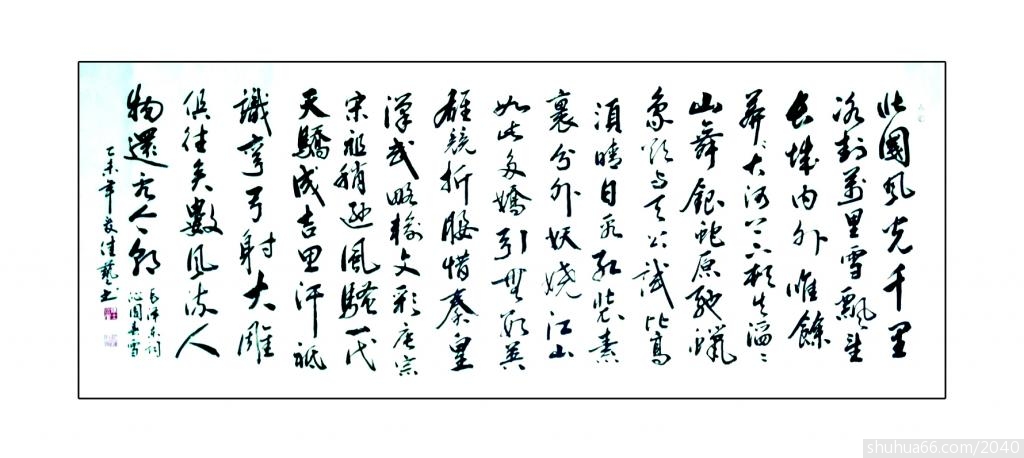 北國風光千里
冰封萬里雪飄望
長城内外惟餘
莽〻大河上下頓失滔〻
山舞銀蛇原馳蠟
象欲与天公試比高
須晴日看紅装素
裹分外妖嬈江山
如此多嬌引無数英
雄競折腰惜秦皇
漢武略輸文彩唐宗
宋祖稍遜風騷一代
天驕成吉思汗祗
識彎弓射大雕
俱往矣數風流人
物還看今朝
毛澤東詞
沁園春雪
乙未年 佳藝书
shuhua66.com/2040